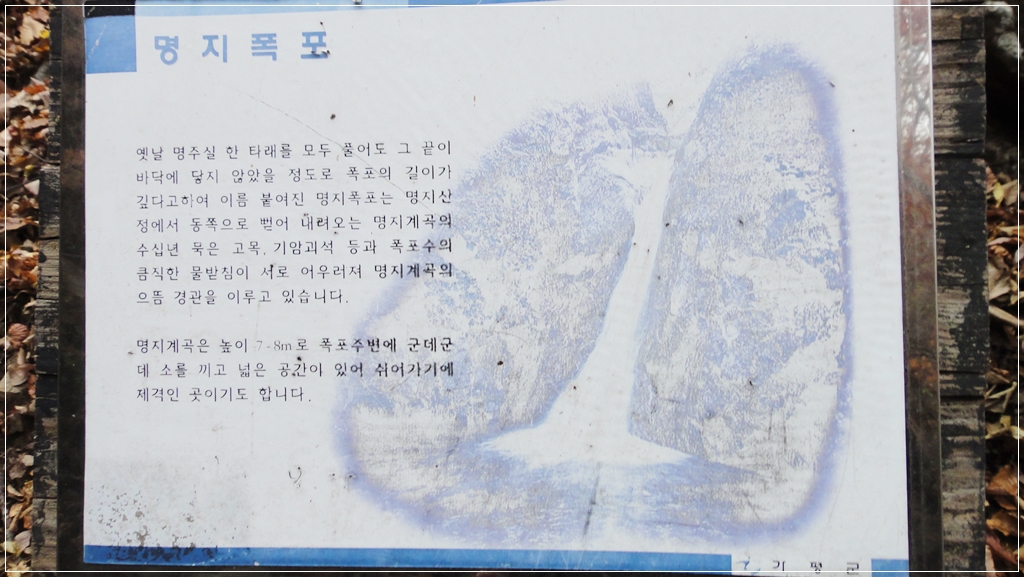 명지폭포
옛날 명주실 한 타래를 모두 풀어도 그 끝이
바닥에 닿지 않았을 정도로 폭포의 길이가
깊다고하여 이름 붙여진 명지폭포는 명지산
정에서 동쪽으로 뻗어 내려오는 명지계곡의
수십년 묵은 고목, 기암괴석 등과 폭포수의
큼직한 물받침이 서로 어우러져 명지계곡의
으뜸 경관을 이루고 있습니다.
명지계곡은 높이 7-8m로 폭포주변에 군데군
데 소를 끼고 넓은 공간이 있어 쉬어가기에
제격인 곳이기도 합니다.
가평군